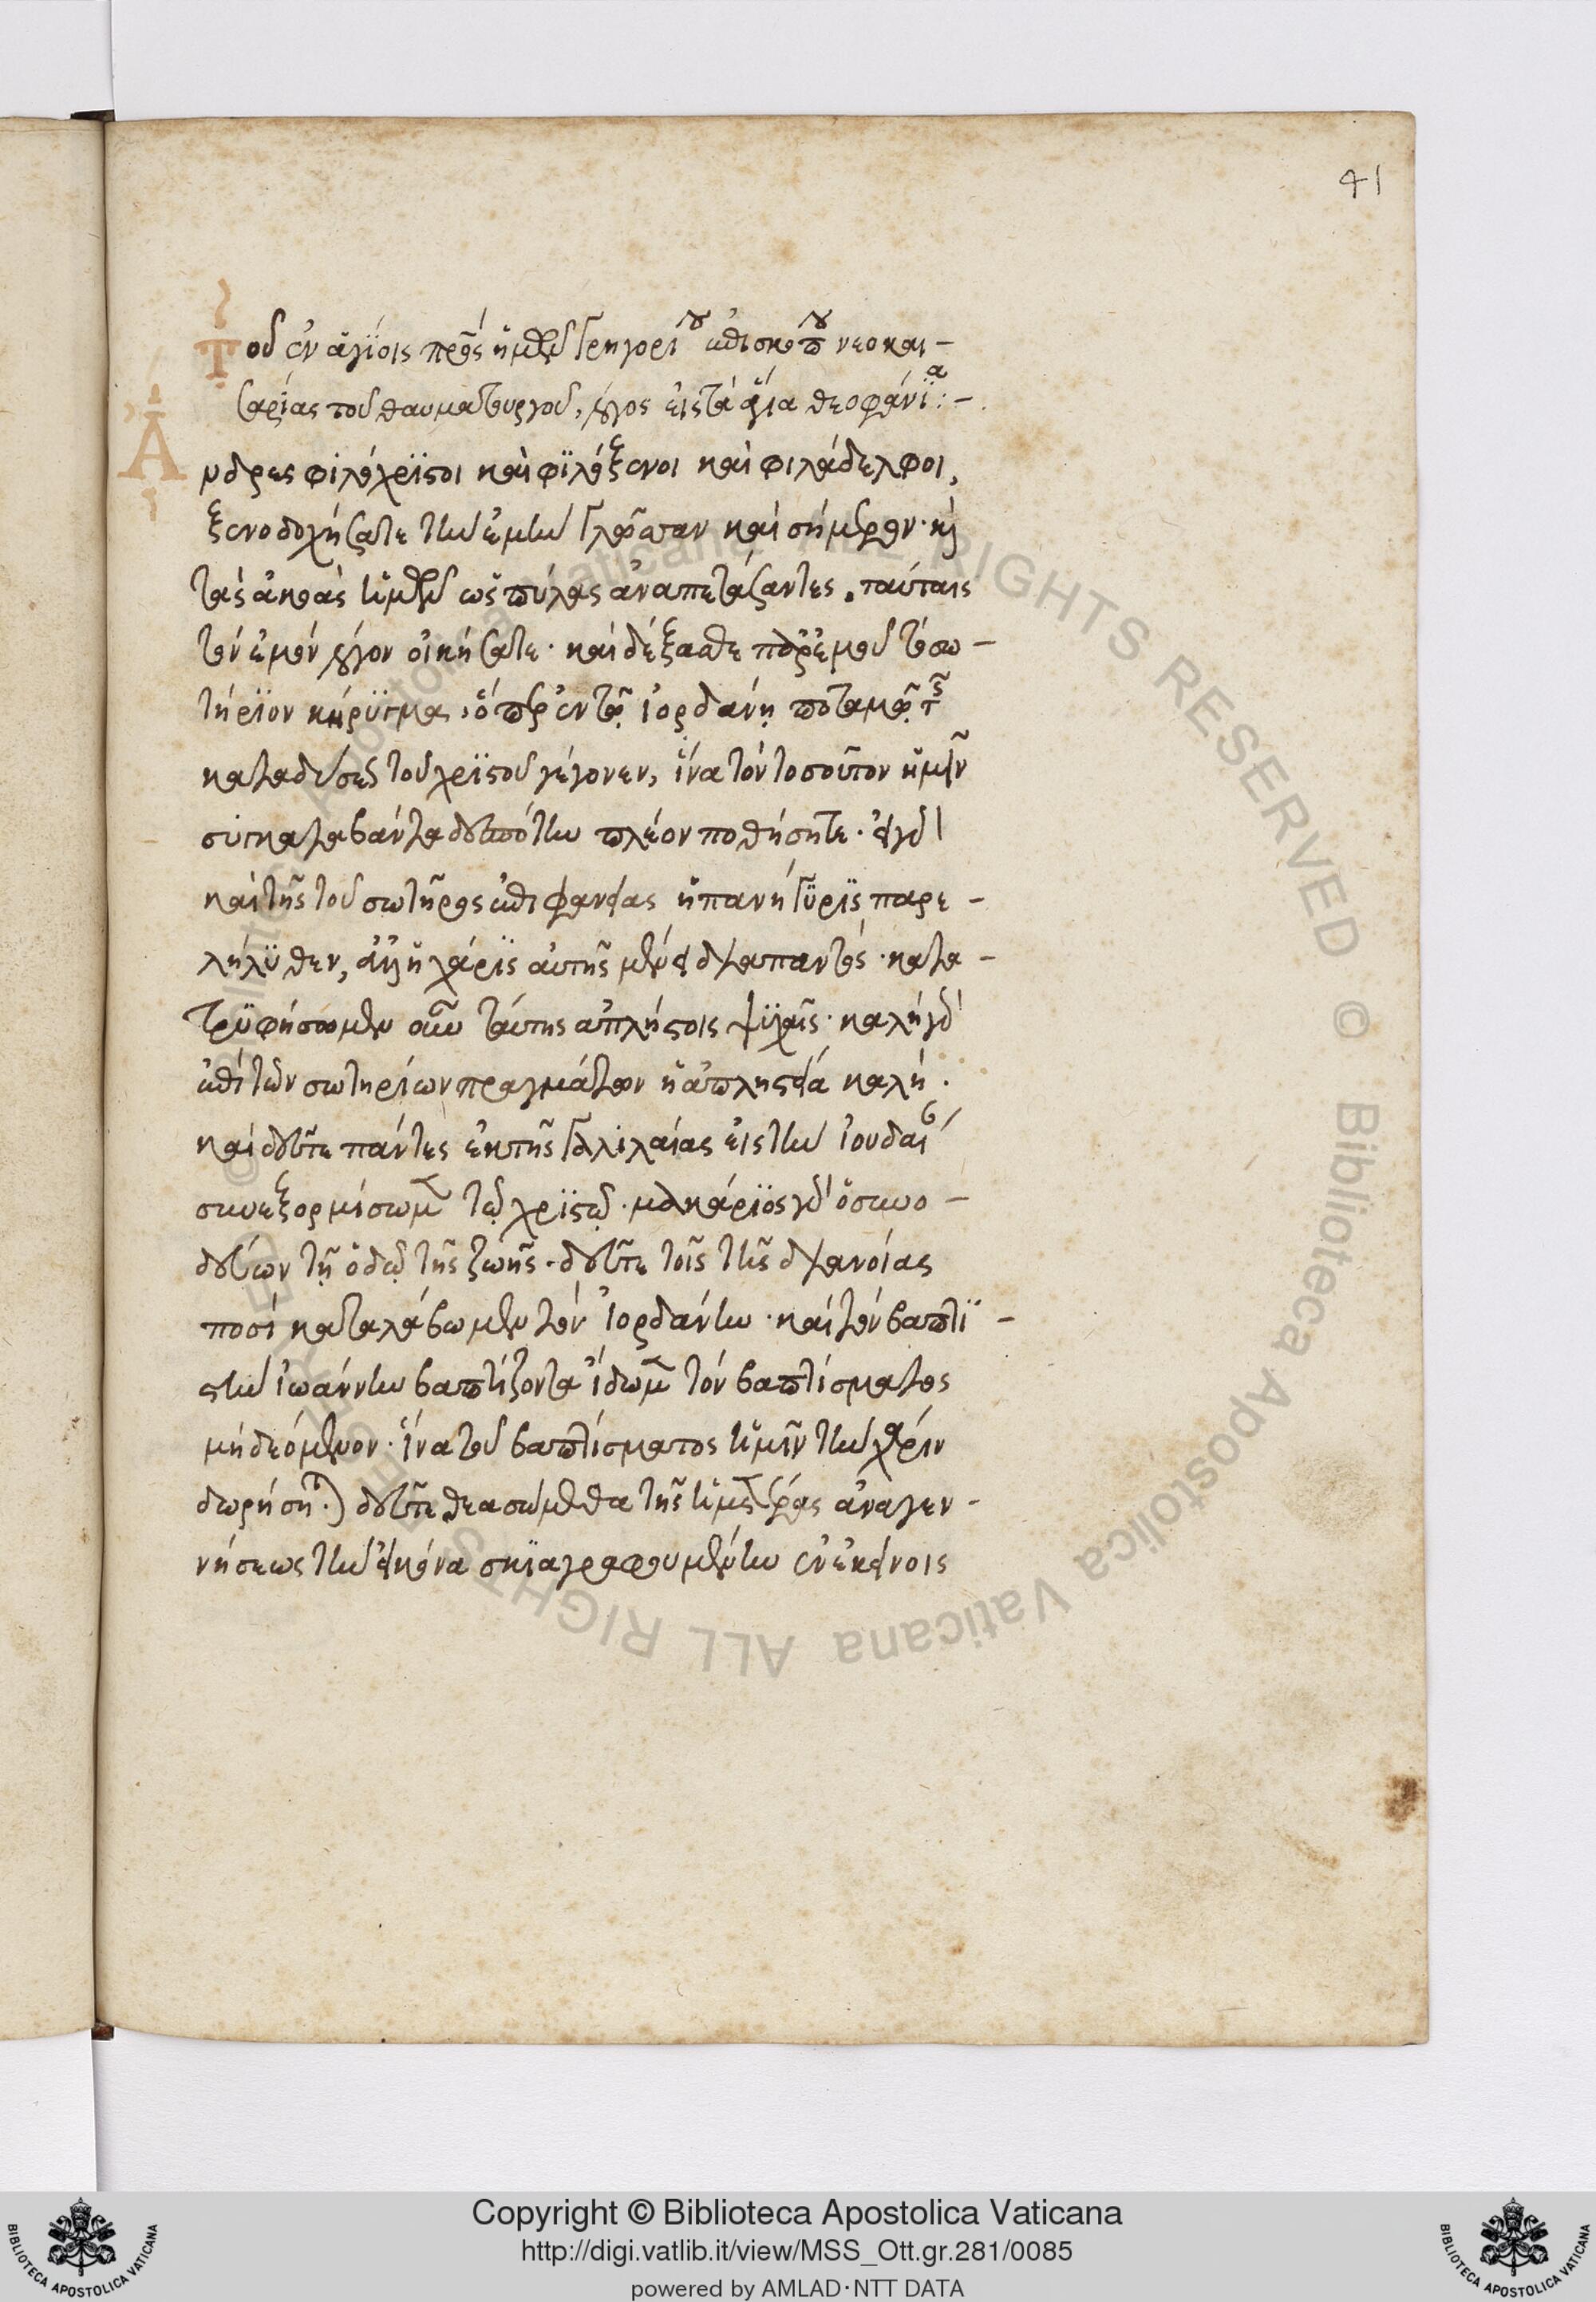 41
Τοῦ ἐν ἁγίοις πρὸς ἡμῶν Γρηγορίου ἐπισκόπου νεοκαι-
σαρίας τοῦ θαυματουργοῦ, λόγος εἰς τὰ ἅγια θεοφάνϊα:-
Ἄνδρες φιλόχρϊστοι καὶ φϊλόξενοι καὶ φιλάδελφοι,
ξενοδοχήσατε τὴν ἐμὴν γλῶτταν καὶ σήμερον· καὶ
τὰς ἀκοὰς ὑμῶν ὡς πύλας ἀναπετάσαντες. ταύταις
τὸν ἐμὸν λόγον οἰκήσατε· καὶ δέξασθε παρ' ἐμοῦ τὸ σω-
τήρϊον κήρϋγμα, ὅπερ ἐν τῷ ἰορδάνῃ ποταμῷ τῆς
καταδύσεως τοῦ χρϊστοῦ γέγονεν, ἵνα τὸν τοσοῦτον ἡμῖν
συγκαταβάντα δεσπότην πλέον ποθήσητε· εἰ γὰρ
καὶ τῆς τοῦ σωτῆρος ἐπιφανείας ἡ πανήγϋρϊς παρε-
λήλϋθεν, ἀλλ' ἡ χάρϊς αὐτῆς μένει διαπαντός· κατα-
τρϋφήσωμεν οὖν ταύτης ἀπλήστοις ψϋχαῖς· καλὴ γὰρ
ἐπὶ τῶν σωτηρίων πραγμάτων ἡ ἀπληστεία καλή.
καὶ δεῦτε πάντες ἐκ τῆς Γαλιλαίας εἰς τὴν ἰουδαίαν
συνεξορμίσωμεν τῷ χρϊστῷ· μακάρϊος γὰρ ὁ συνο-
δεύων τῇ ὁδῷ τῆς ζωῆς. δεῦτε τοῖς τῆς διανοίας
ποσὶ καταλάβωμεν τὸν ἰορδάνην· καὶ τὸν βαπτϊ-
στὴν ἰωάννην βαπτίζοντα ἴδωμεν τὸν βαπτίσματος
μὴ δεόμενον· ἵνα τοῦ βαπτίσματος ὑμῖν τὴν χάριν
δωρήσηται· δεῦτε θεασώμεθα τῆς ὑμετέρας ἀναγεν-
νήσεως τὴν εἰκόνα σκϊαγραφουμένην ἐν ἐκείνοις
Copyright © Biblioteca Apostolica Vaticana
http://digi.vatlib.it/view/MSS_Ott.gr.281/0085
powered by AMLAD·NTT DATA